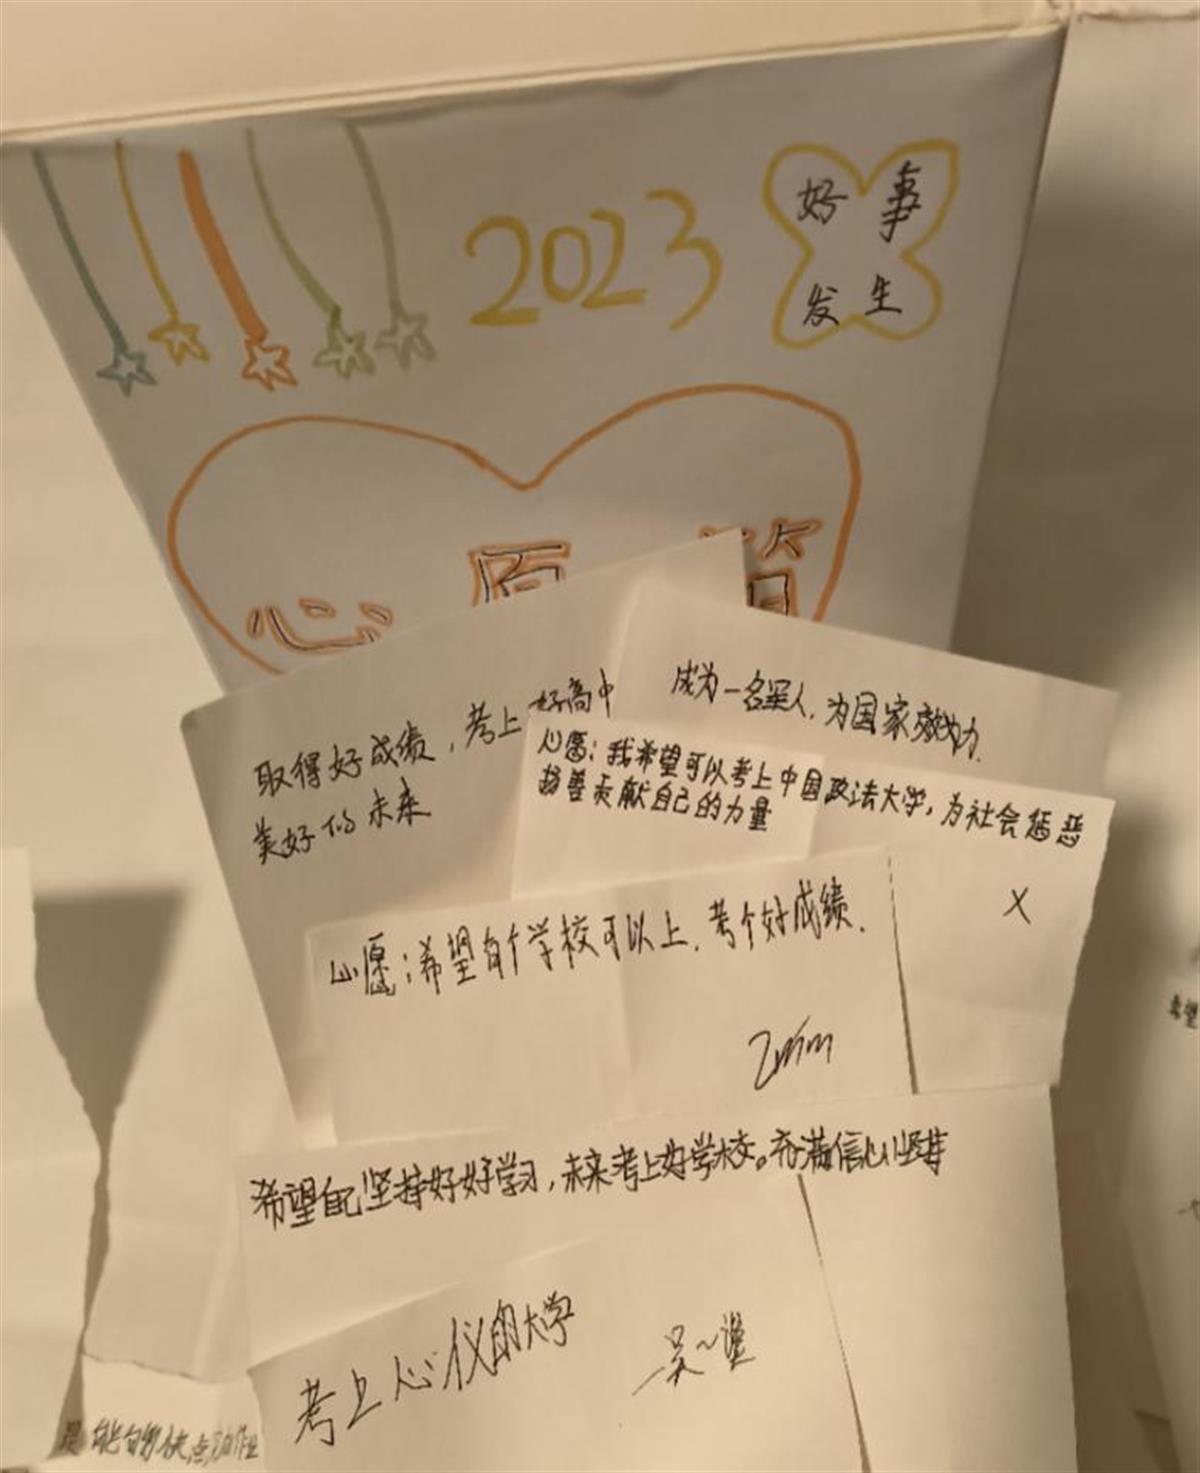 2023
好事
发生
心愿箱
取得好成绩，考上好高中
美好的未来
成为一名军人，为国家效力.
心愿：我希望可以考上中国政法大学，为社会惩恶
扬善贡献自己的力量
X
心愿：希望有个学校可以上，考个好成绩.
希望自己坚持好好学习，未来考上好学校。充满信心坚持
考上心仪的大学
希望